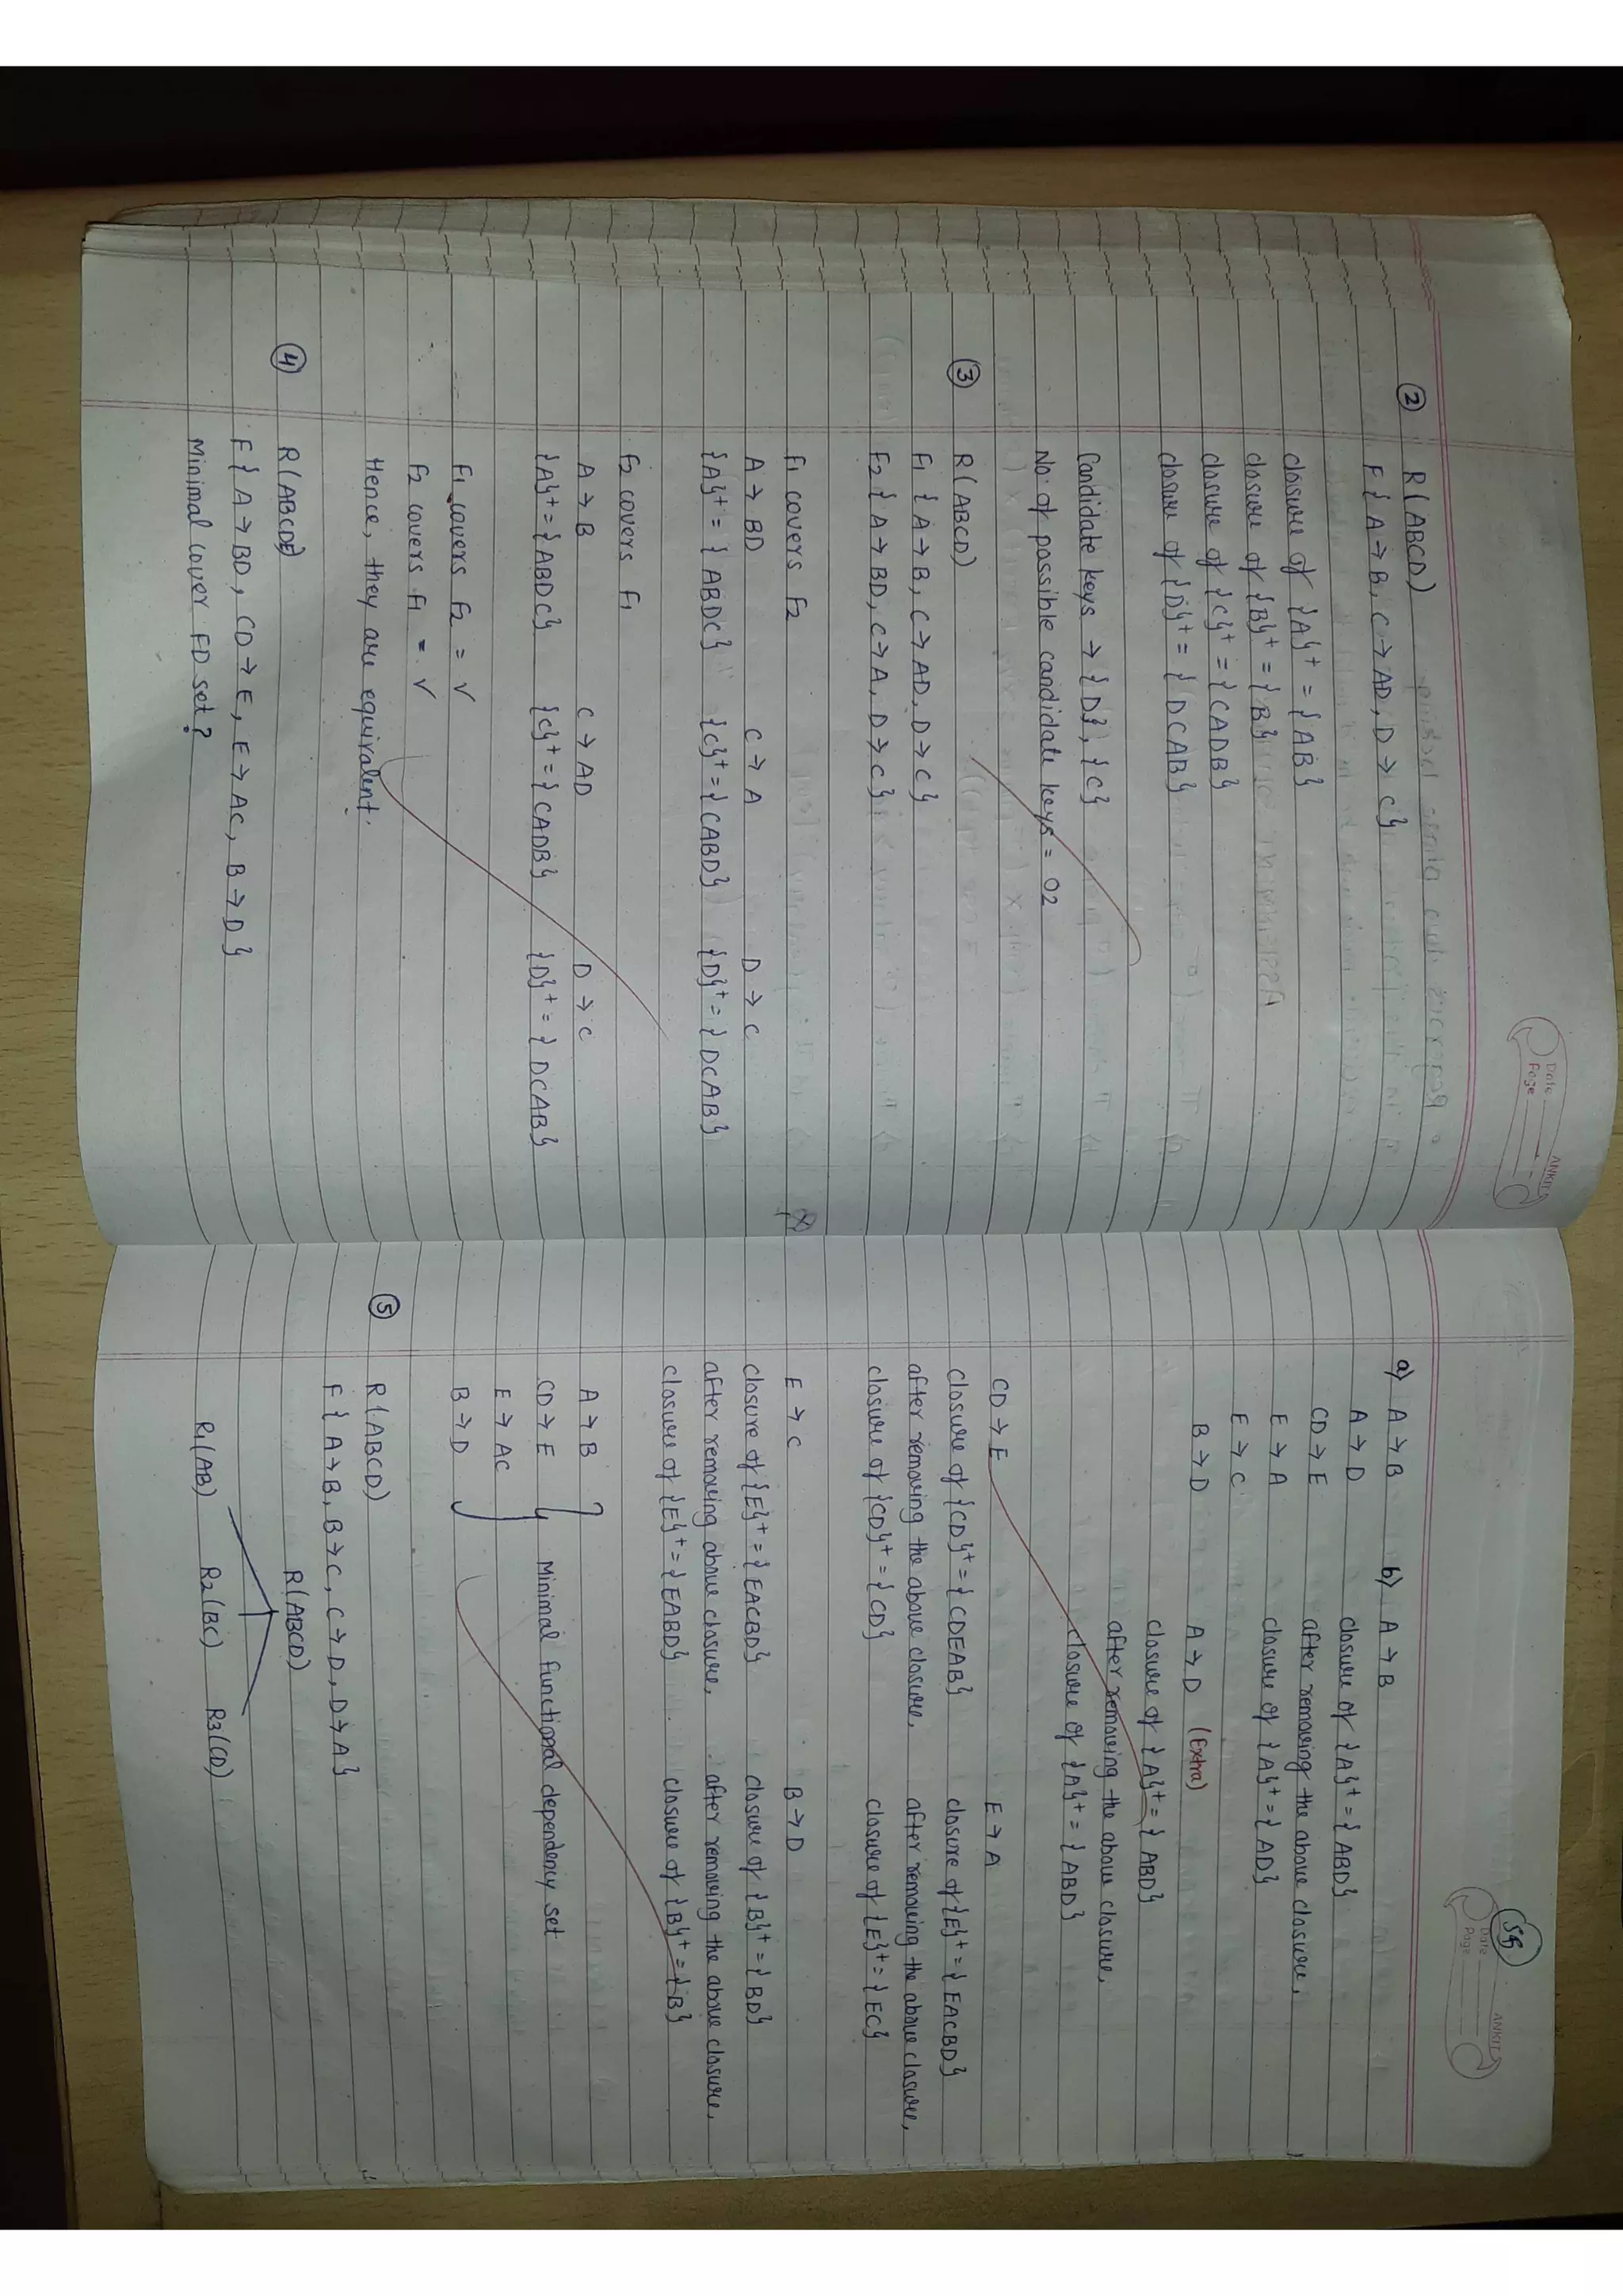 Date
Page
ANKIT
② R(ABCD)
F{A→B, C→AD, D→C}
closure of {A}+ = {AB}
closure of {B}+ = {B}
closure of {C}+ = {CADB}
closure of {D}+ = {DCAB}
Candidate keys → {D}, {C}
No. of possible candidate keys = 02
③ R(ABCD)
F1 {A→B, C→AD, D→C}
F2 {A→BD, C→A, D→C}
F1 covers F2
A→BD C→A D→C
{A}+ = {ABDC} {C}+ = {CABD} {D}+ = {DCAB}
F2 covers F1
A→B C→AD D→C
{A}+ = {ABDC} {C}+ = {CADB} {D}+ = {DCAB}
F1 covers F2 = √
F2 covers F1 = √
Hence, they are equivalent.
④ R(ABCDE)
F{A→BD, CD→E, E→AC, B→D}
Minimal cover FD set?
55
Date
Page
ANKIT
a) A→B b) A→B
A→D closure of {A}+ = {ABD}
CD→E after removing the above closure,
E→A closure of {A}+ = {AD}
E→C
B→D A→D (Extra)
closure of {A}+ = {ABD}
after removing the above closure,
closure of {A}+ = {ABD}
CD→E E→A
closure of {CD}+ = {CDEAB} closure of {E}+ = {EACBD}
after removing the above closure, after removing the above closure,
closure of {CD}+ = {CD} closure of {E}+ = {EC}
E→C B→D
closure of {E}+ = {EACBD} closure of {B}+ = {BD}
after removing above closure, after removing the above closure,
closure of {E}+ = {EABD} closure of {B}+ = {B}
A→B
CD→E Minimal functional dependency set
E→AC
B→D
⑤ R(ABCD)
F{A→B, B→C, C→D, D→A}
R(ABCD)
R1(AB) R2(BC) R3(CD)